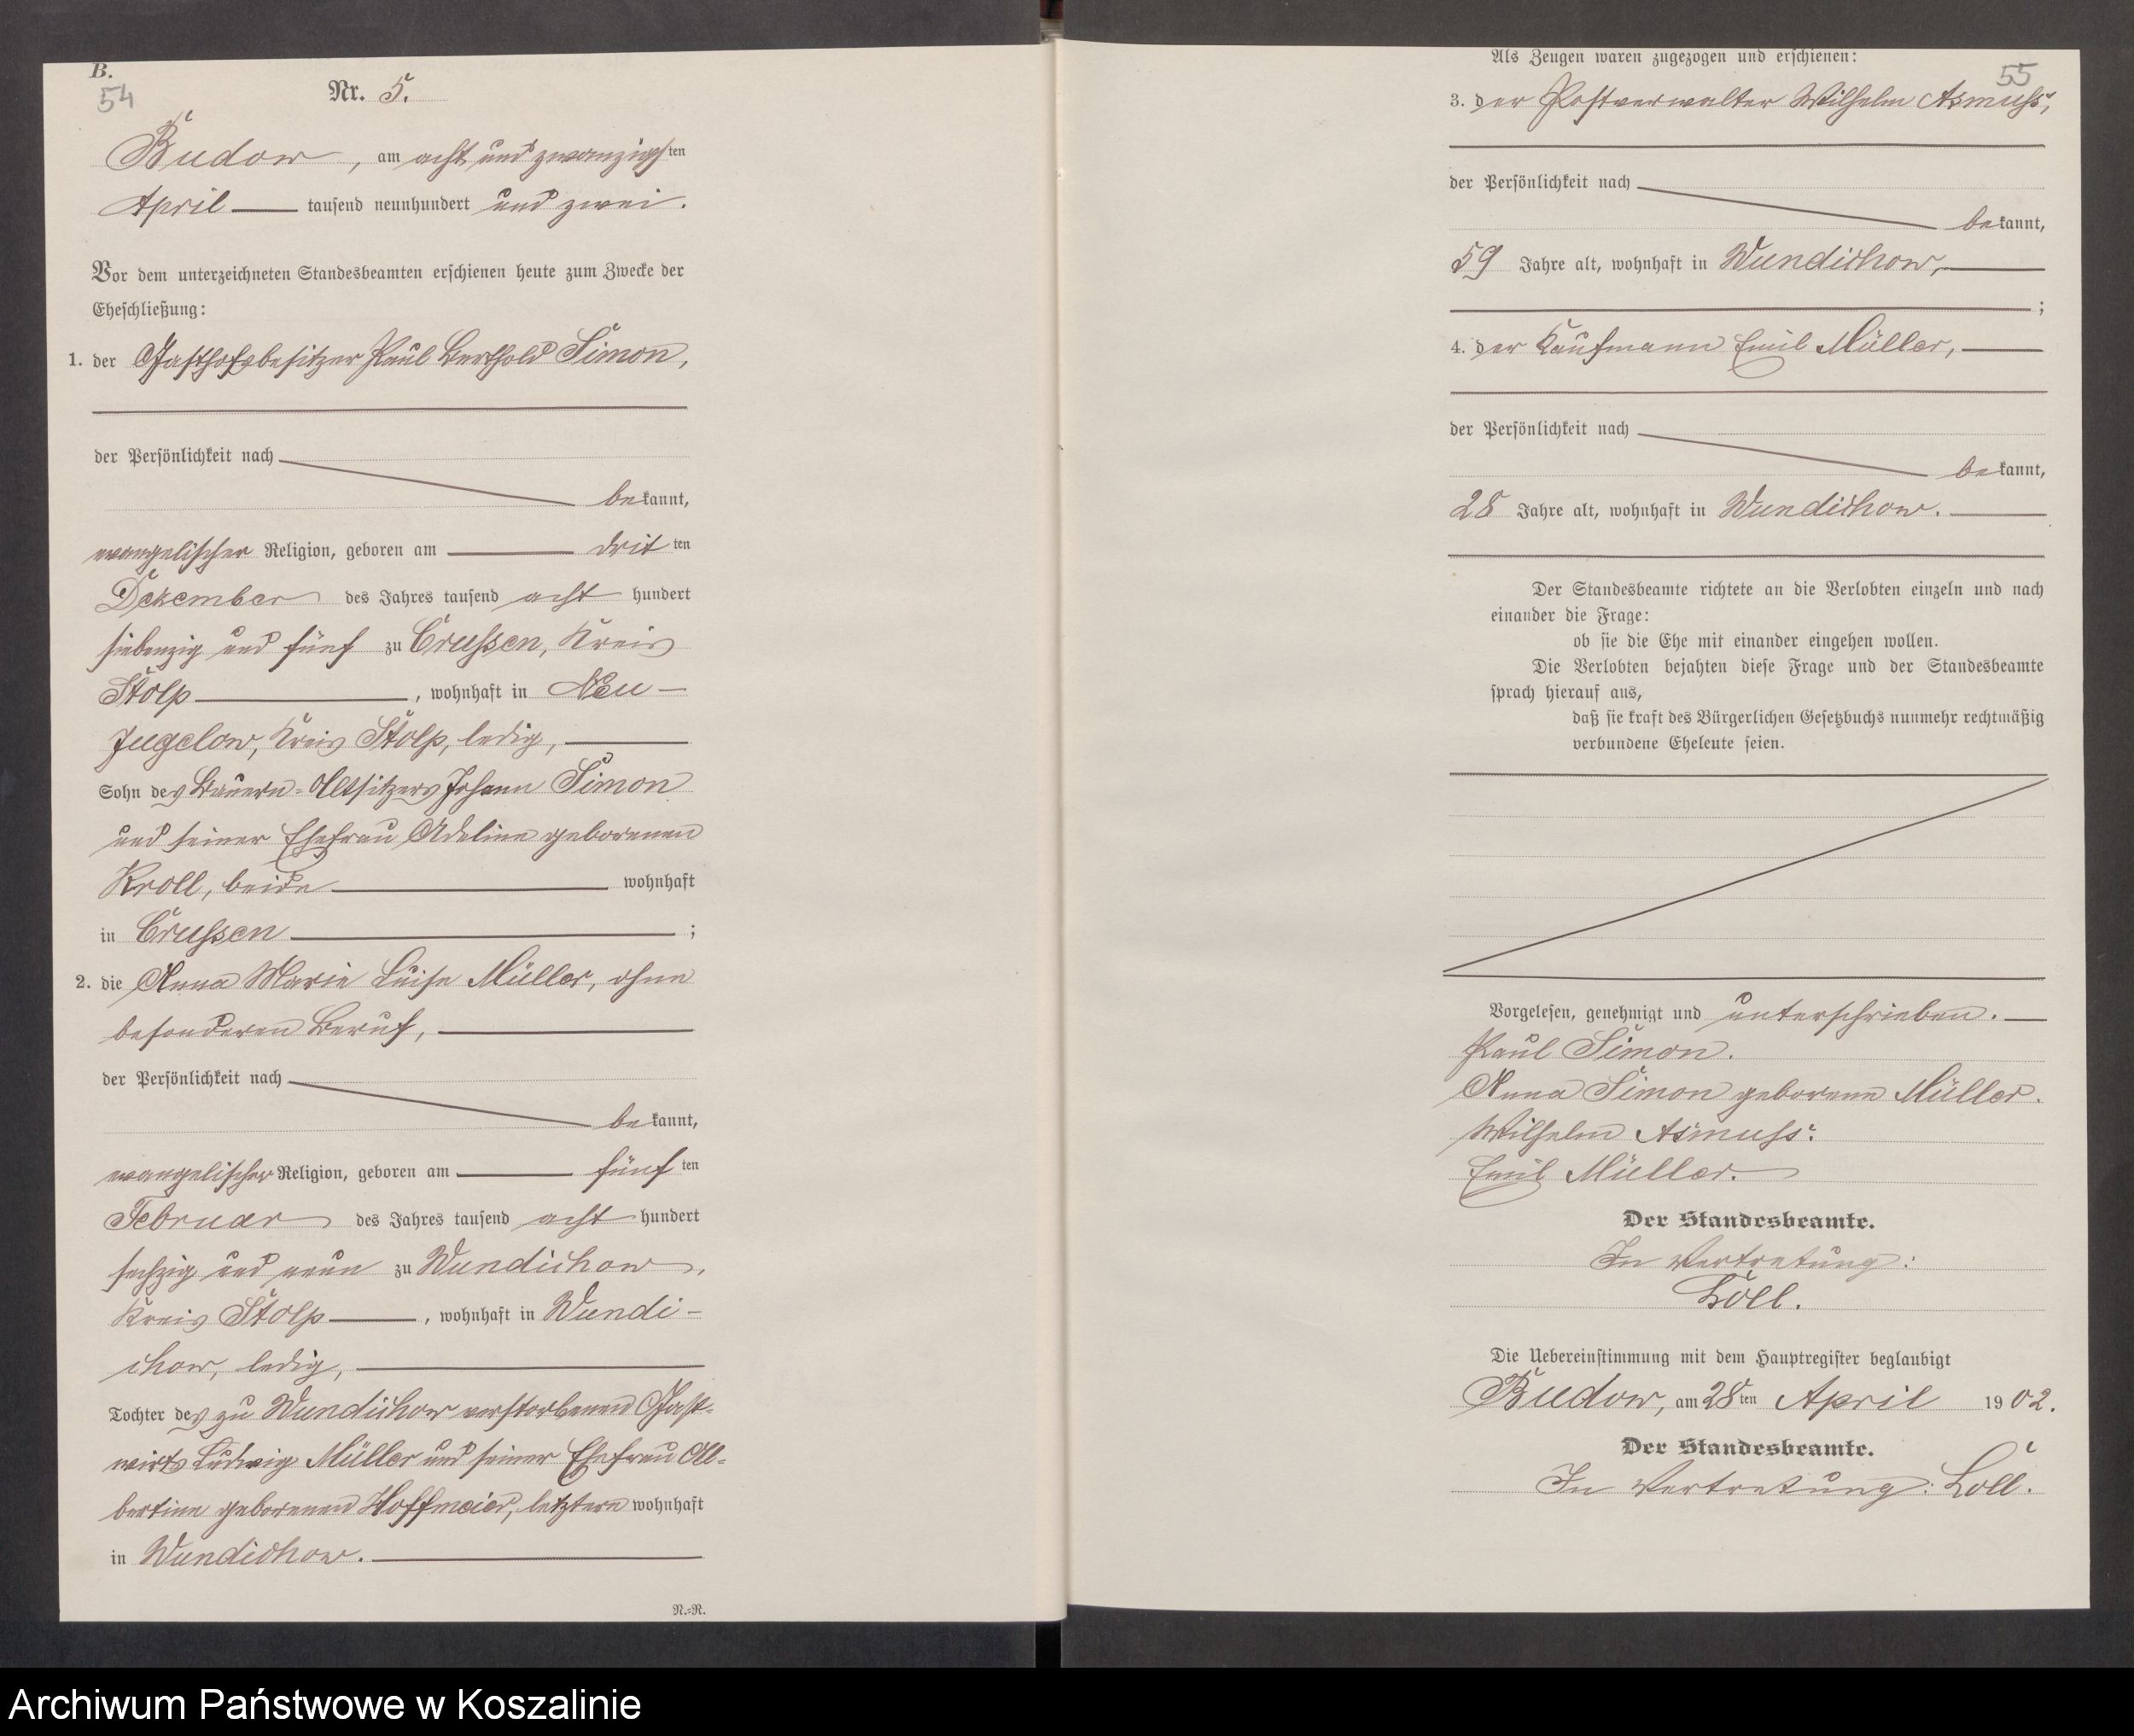 B.
54
Nr. 5.
Budow, am acht und zwanzigsten
April tausend neunhundert und zwei.
Vor dem unterzeichneten Standesbeamten erschienen heute zum Zwecke der
Eheschließung:
1. der Gasthofsbesitzer Paul Berthold Simon,
der Persönlichkeit nach
bekannt,
evangelischer Religion, geboren am dritten
Dezember des Jahres tausend acht hundert
siebenzig und fünf zu Crussen, Kreis
Stolp, wohnhaft in Neu-
Jugelow, Kreis Stolp, ledig,
Sohn des Bauern-Altsitzers Johann Simon
und seiner Ehefrau Adeline geborenen
Kroll, beide wohnhaft
in Crussen;
2. die Anna Marie Luise Müller, ohne
besonderen Beruf,
der Persönlichkeit nach
bekannt,
evangelischer Religion, geboren am fünften
Februar des Jahres tausend acht hundert
sechzig und neun zu Wundichow,
Kreis Stolp, wohnhaft in Wundi-
chow, ledig,
Tochter des zu Wundichow verstorbenen Gast-
wirts Ludwig Müller und seiner Ehefrau Al-
bertine geborenen Hoffmeier, letztere wohnhaft
in Wundichow.
N.=N.
Als Zeugen waren zugezogen und erschienen:
55
3. der Postverwalter Wilhelm Asmuss,
der Persönlichkeit nach
bekannt,
59 Jahre alt, wohnhaft in Wundichow,
;
4. der Kaufmann Emil Müller,
der Persönlichkeit nach
bekannt,
28 Jahre alt, wohnhaft in Wundichow.
Der Standesbeamte richtete an die Verlobten einzeln und nach
einander die Frage:
ob sie die Ehe mit einander eingehen wollen.
Die Verlobten bejahten diese Frage und der Standesbeamte
sprach hierauf aus,
daß sie kraft des Bürgerlichen Gesetzbuchs nunmehr rechtmäßig
verbundene Eheleute seien.
Vorgelesen, genehmigt und unterschrieben.
Paul Simon.
Anna Simon geborene Müller.
Wilhelm Asmuss.
Emil Müller.
Der Standesbeamte.
In Vertretung:
Loll.
Die Uebereinstimmung mit dem Hauptregister beglaubigt
Budow, am 28ten April 1902.
Der Standesbeamte.
In Vertretung: Loll.
Archiwum Państwowe w Koszalinie